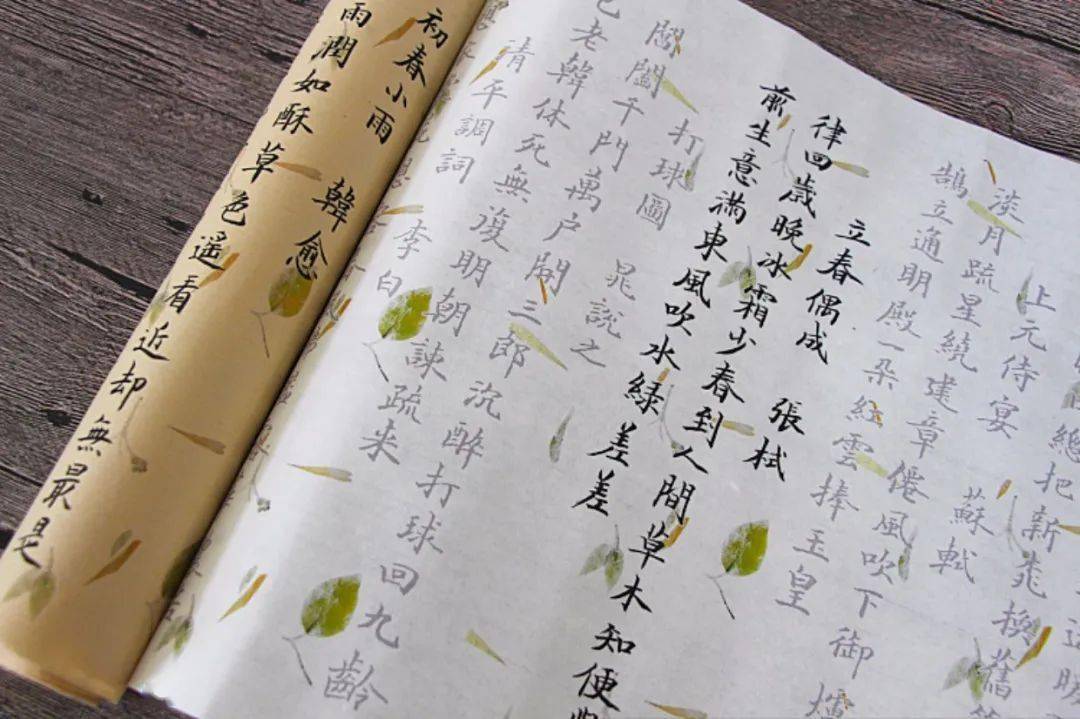 送暖
總把新桃換舊
上元侍宴 蘇軾
淡月疏星繞建章僊風吹下御爐
鵠立通明殿一朵紅雲捧玉皇
立春偶成 張栻
律回歲晚冰霜少春到人間草木知便
前生意滿東風吹水綠差差
打球圖 晁說之
閶闔千門萬戶開三郎沉醉打球回九齡
已老韓休死無復明朝諫疏來
清平調詞 李白
初春小雨 韓愈
雨潤如酥草色遙看近却無最是